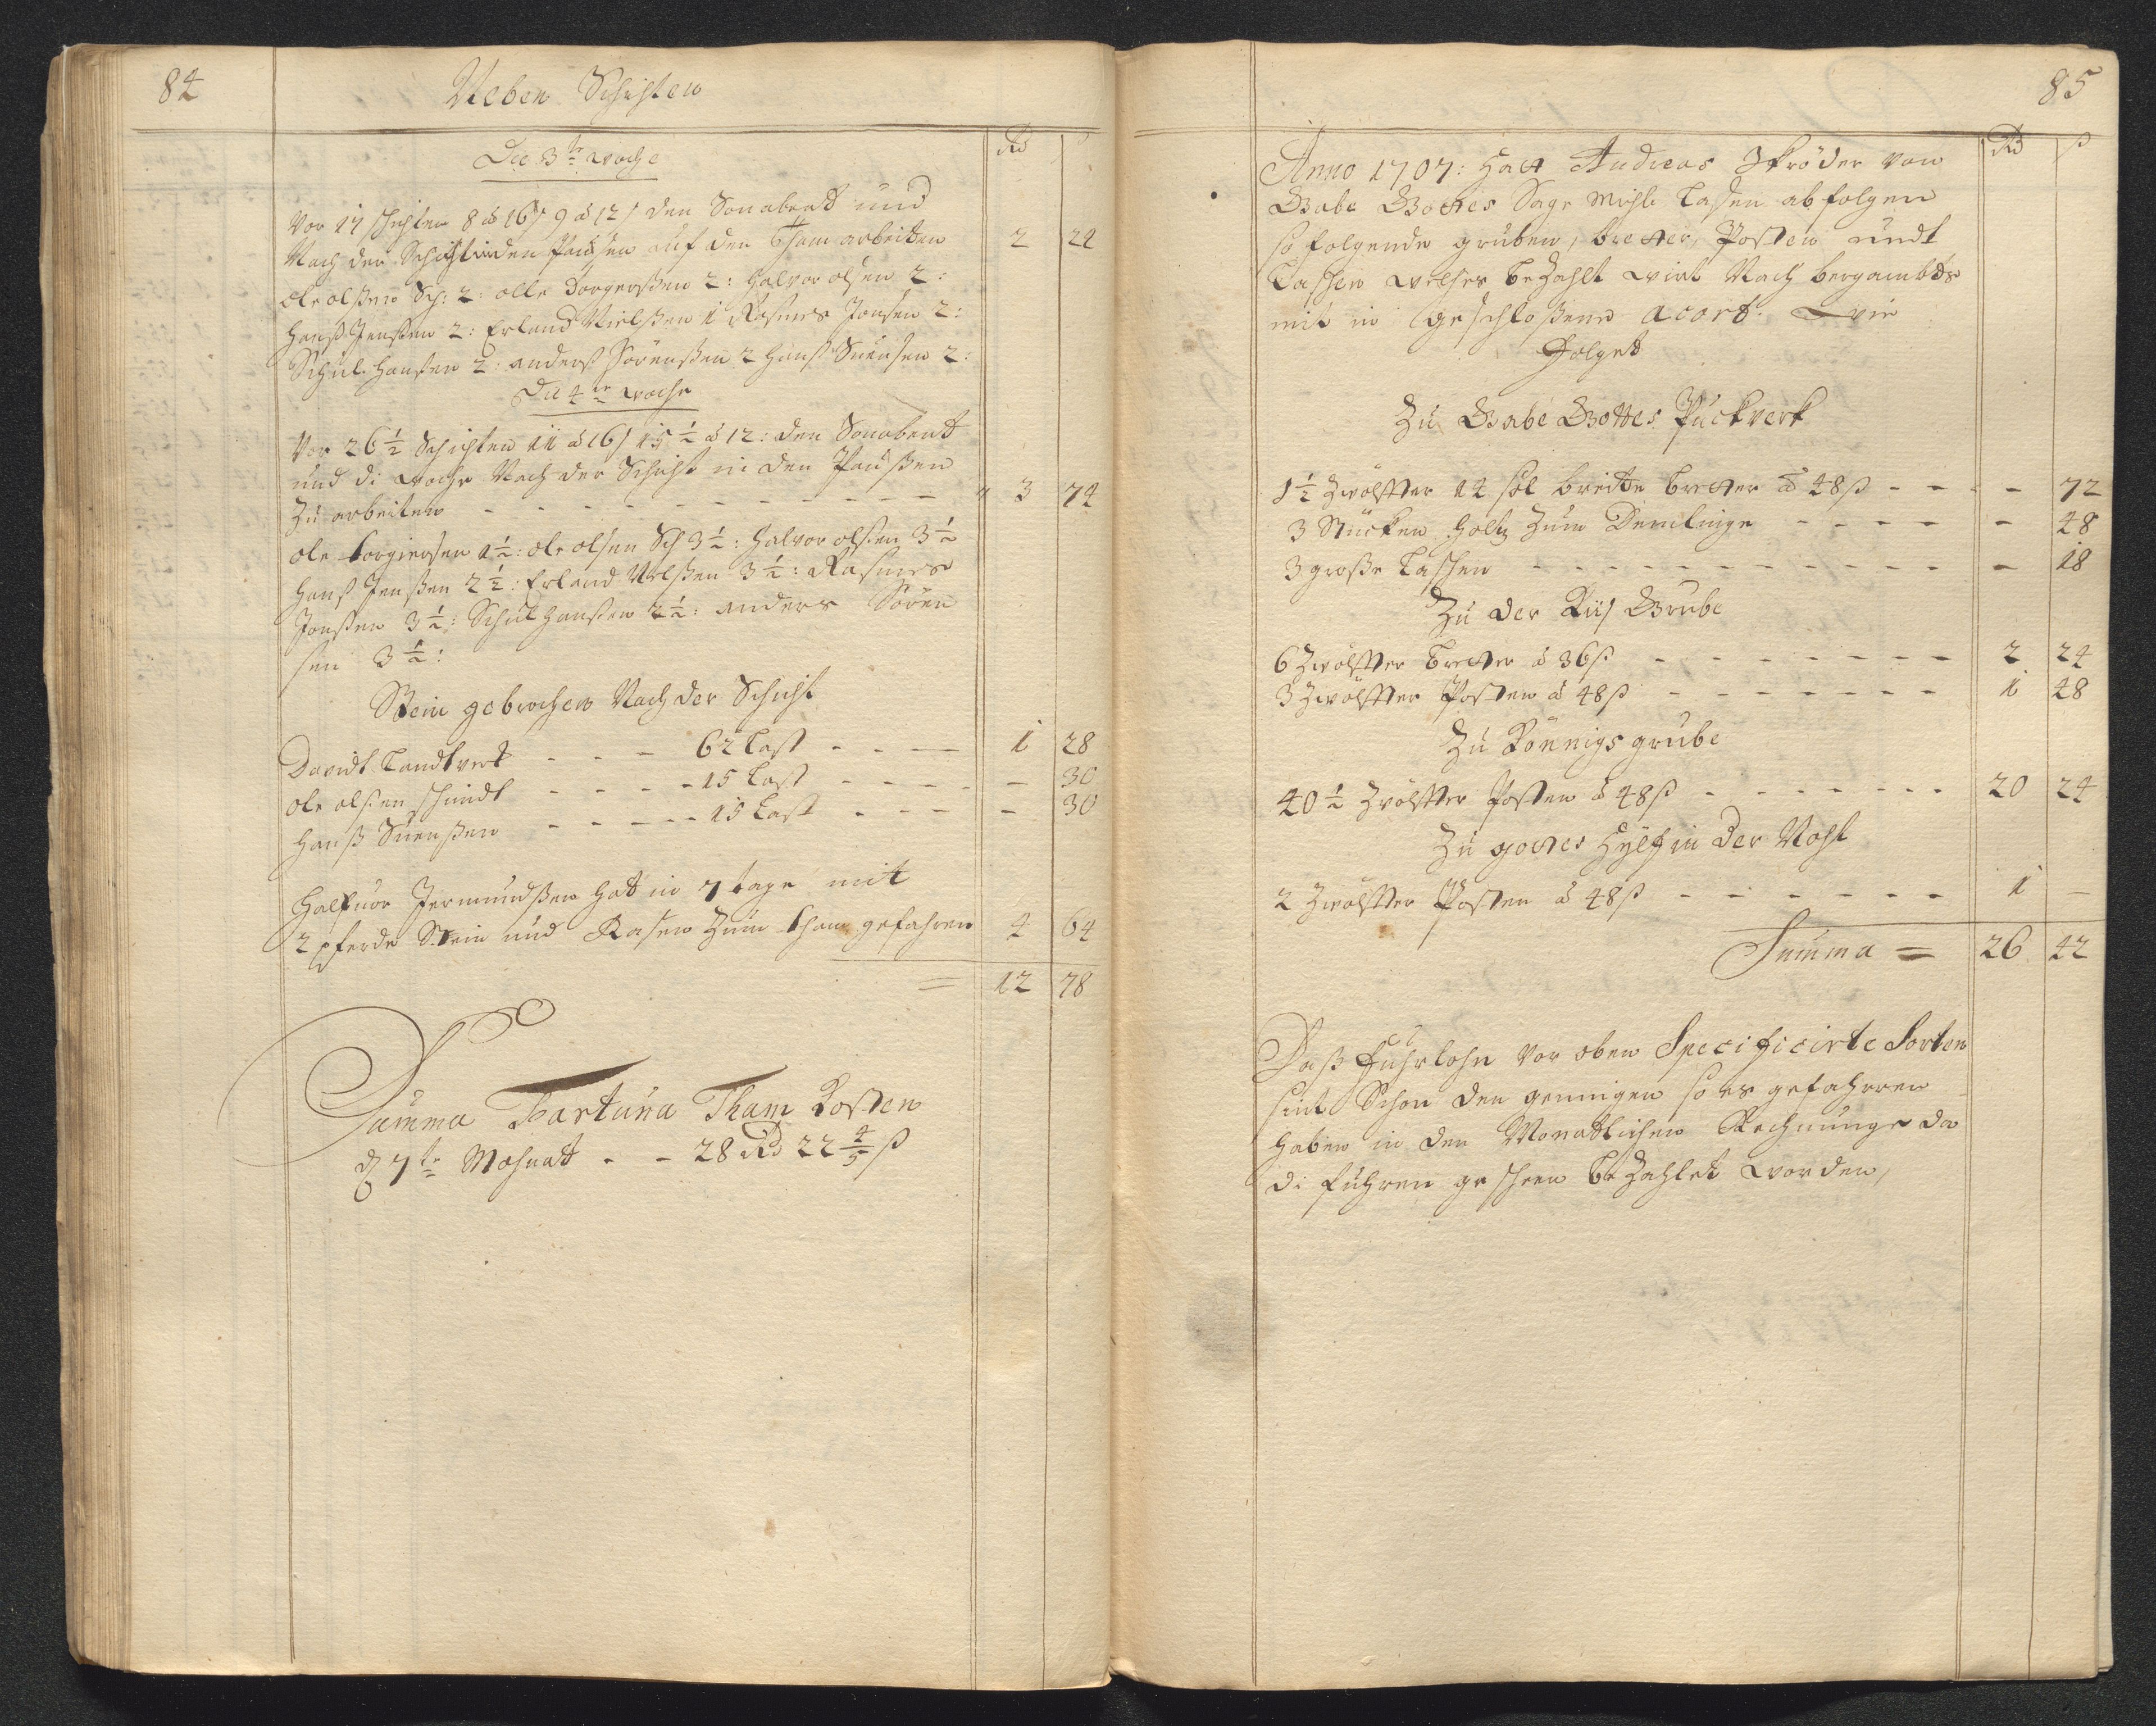 84
Neben Schichten
Rd
ß
Die 3te woche
Vor 17 schichten 8 â 16/ 9 â 12/ den Sonabendt und
Nach der Schicht in den Pausen auf den Tham arbeitten 2 24
ole olßen Sch: 2: olle Torgerßen 2: halvor olsen 2:
hanß Jenßen 2: Erland Nielßen 1 Rasmes Jonsen 2:
Schul hansen 2: anderß Sörenßen 2 hanß Suensen 2:
Die 4te woche
Vor 26 1/2 Schichten 11 â 16/ 15 1/2 â 12: den Sonabent
und di woche Nach der Schicht in den Paußen
Zu arbeiten - - - - - - - - 3 74
ole torgiersen 1 1/2: ole olsen Sch 3 1/2: halvor olsen 3 1/2
hanß Jenßen 2 1/2: Erland Nelßen 3 1/2: Rasmes
Jonßen 3 1/2: Schul hanßen 2 1/2: anders Sören
sen 3 1/2:
Stein gebrochen Nach der Schicht
Davidt Landtverk - - - 62 Last - - - 1 28
ole olsen schmidt - - - - 15 Last - - - - - 30
hanß Suenßen - - - - - 15 Last - - - - - 30
Halfuor Jermundßen hat in 7 tage mit
2 pferde Stein und Rasen Zum tham gefahren 4 64
= 12 78
Summa Fartuna Tham Kosten
d 7te Mohnat - - 28 Rd 22 4/5 ß
85
Rd
ß
Anno 1707: hatt Andreas Skröder von
Gabe Gottes Sage Mühle Lasen abfolgen
so folgende gruben, bretter, Posten undt
Laschen welches bezahlt wirt Nach bergambts
mit in geschloßene acort. wie
Folget
Zu Gabe Gottes Puckverk
1 1/2 Zwölffter 14 föl breitte bretter â 48 ß - - - - 72
3 Stücken holtz Zum Demlinge - - - - - 48
3 große Laschen - - - - - - - - - - - - 18
Zu der Kiis Grube
6 Zwölffter bretter â 36 ß - - - - - - - - 2 24
3 Zwölffter Posten â 48 ß - - - - - - - 1 48
Zu Könnigs grube
40 1/2 Zwölffter Posten â 48 ß - - - - - - - 20 24
Zu gottes Hylf in der Noht
2 Zwölffter Posten â 48 ß - - - - - - - 1 -
Summa = 26 42
Daß Fuhrlohn vor oben Specificirte Sorten
sint Schon den gennigen so es gefahrren
haben in den Monattlichen Rechnunge da
di fuhren gescheen bezahlet worden,